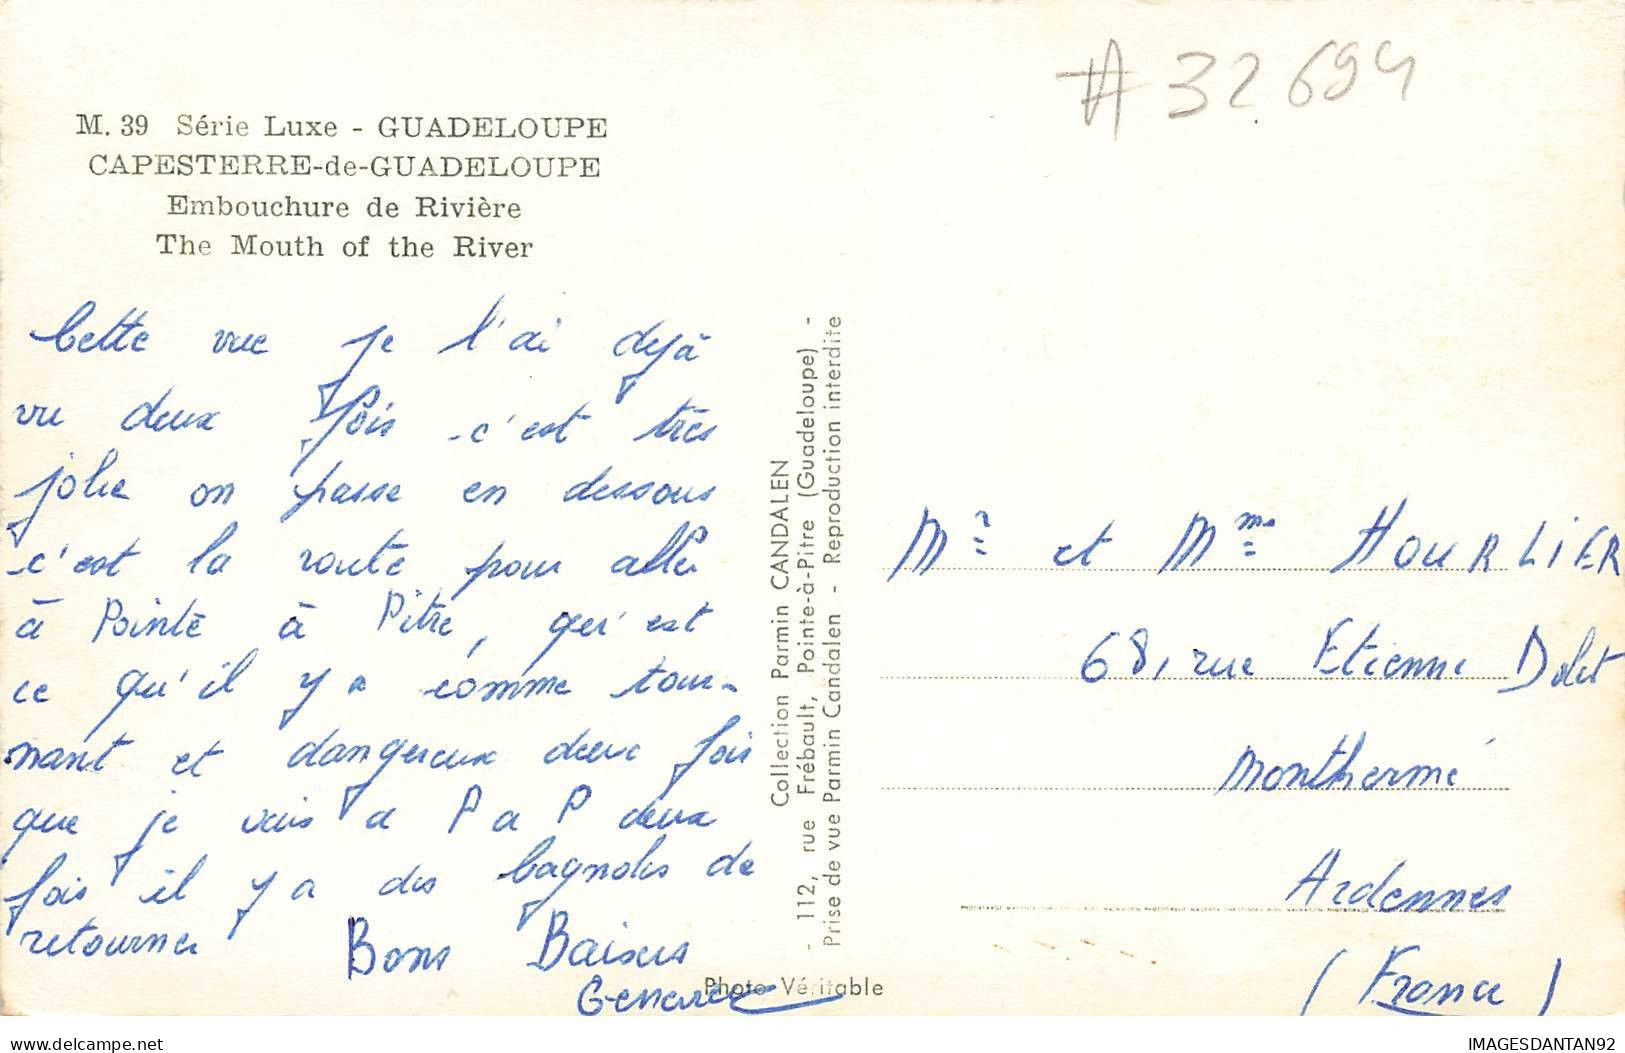 #32694
M. 39 Série Luxe - GUADELOUPE
CAPESTERRE-de-GUADELOUPE
Embouchure de Rivière
The Mouth of the River
Cette vue je l'ai dejà
vu deux fois c'est très
jolie on passe en dessous
c'est la route pour aller
à Pointe à Pitre, qu'est
ce qu'il y a comme tour-
nant et dangereux deux fois
que je vais a P a P deux
fois il y a des bagnoles de
retourner
Bons Baisers
Collection Parmin CANDALEN
- 112, rue Frébault, Pointe-à-Pitre (Guadeloupe) -
Prise de vue Parmin Candalen - Reproduction interdite
Photo Véritable
Mr et Mme HOURLIER
68, rue Etienne Dolet
Monthermé
Ardennes
(France)
delcampe.net
IMAGESDANTAN92